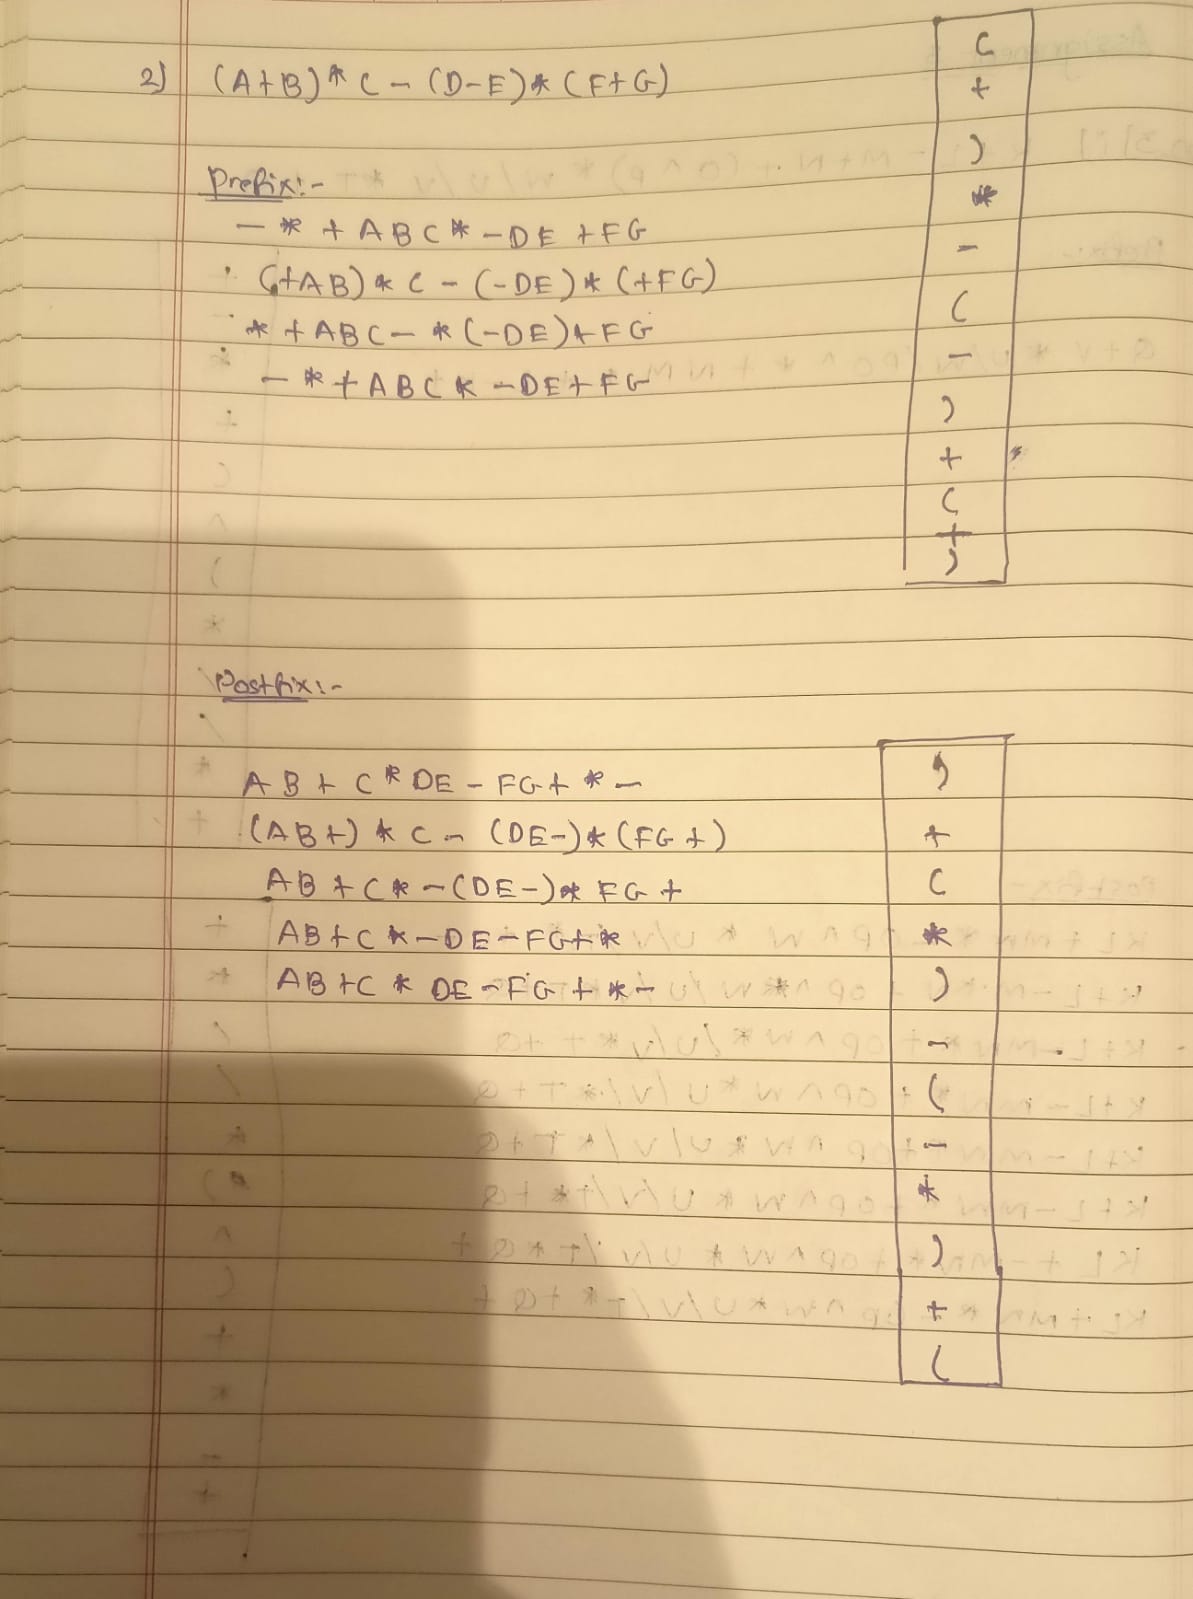 2) (A+B)* C - (D-E)* (F+G)
Prefix:-
- * + ABC * - DE + FG
(+AB) * C - (-DE) * (+FG)
* + ABC - * (-DE) + FG
- * + ABC * - DE + FG
(
+
)
*
-
(
-
)
+
(
+
)
Postfix:-
AB + C * DE - FG + * -
(AB+) * C - (DE-) * (FG+)
AB + C * - (DE-) * FG +
AB + C * - DE - FG + *
AB + C * DE - FG + * -
)
+
(
*
)
-
(
-
*
)
+
(